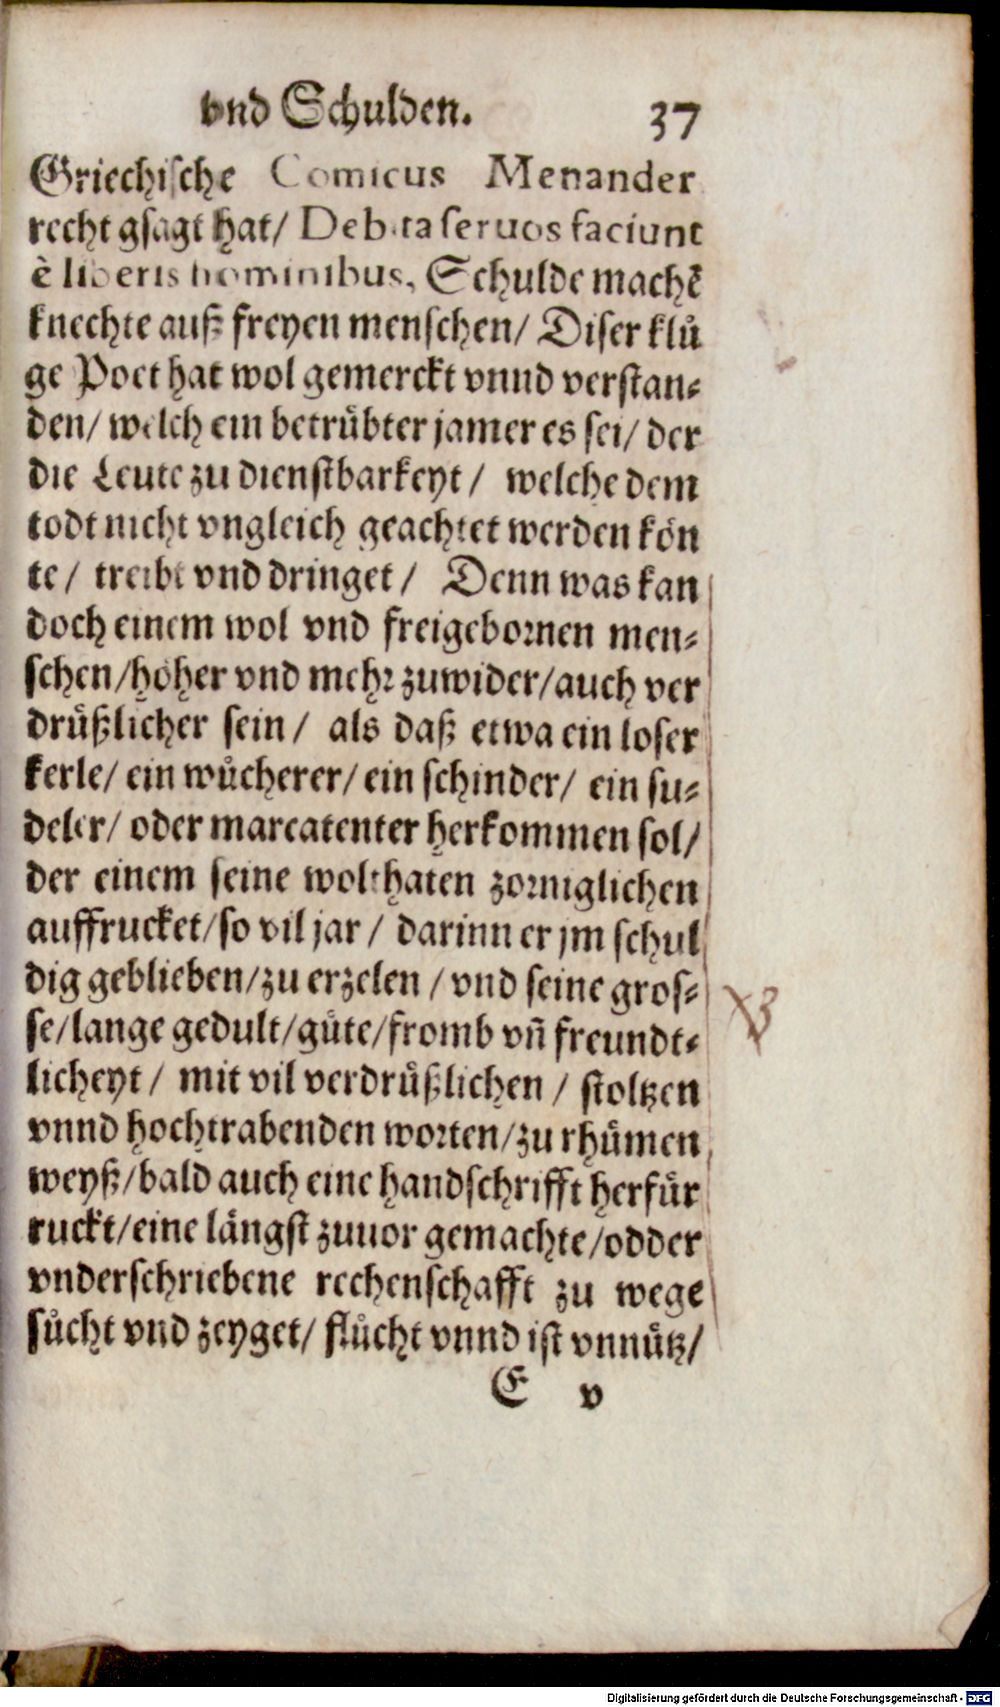 vnd Schulden. 37
Griechische Comicus Menander
recht gsagt hat/ Debita seruos faciunt
è liberis hominibus, Schulde machẽ
knechte auß freyen menschen/ Diser kluͤ
ge Poet hat wol gemerckt vnnd verstan⸗
den/ welch ein betruͤbter jamer es sei/ der
die Leute zu dienstbarkeyt/ welche dem
todt nicht vngleich geachtet werden koͤn
te/ treibt vnd dringet/ Denn was kan
doch einem wol vnd freigebornen men⸗
schen/hoͤher vnd mehr zuwider/auch ver
druͤßlicher sein/ als daß etwa ein loser
kerle/ ein wuͤcherer/ ein schinder/ ein su⸗
deler/ oder marcatenter herkommen sol/
der einem seine wolthaten zorniglichen
auffrucket/so vil jar/ darinn er jm schul
dig geblieben/zu erzelen/ vnd seine gros⸗
se/lange gedult/guͤte/fromb vñ freundt⸗
licheyt/ mit vil verdruͤßlichen/ stoltzen
vnnd hochtrabenden worten/zu rhuͤmen
weyß/bald auch eine handschrifft herfuͤr
ruckt/eine laͤngst zuuor gemachte/odder
vnderschriebene rechenschafft zu wege
suͤcht vnd zeyget/ fluͤcht vnnd ist vnnuͤtz/
E v
Digitalisierung gefördert durch die Deutsche Forschungsgemeinschaft - DFG